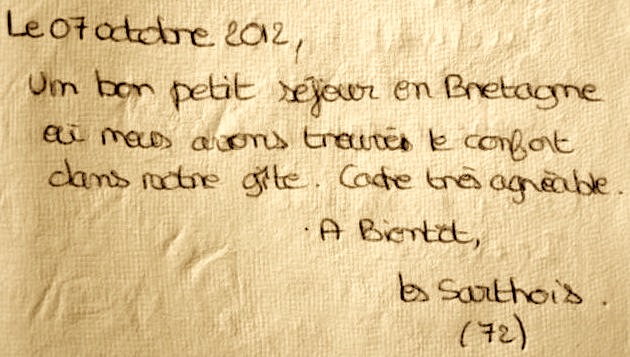 Le 07 octobre 2012,
Un bon petit séjour en Bretagne
où nous avons trouvés le confort
dans notre gîte. Cadre très agréable.
A Bientôt,
les Sarthois.
(72)